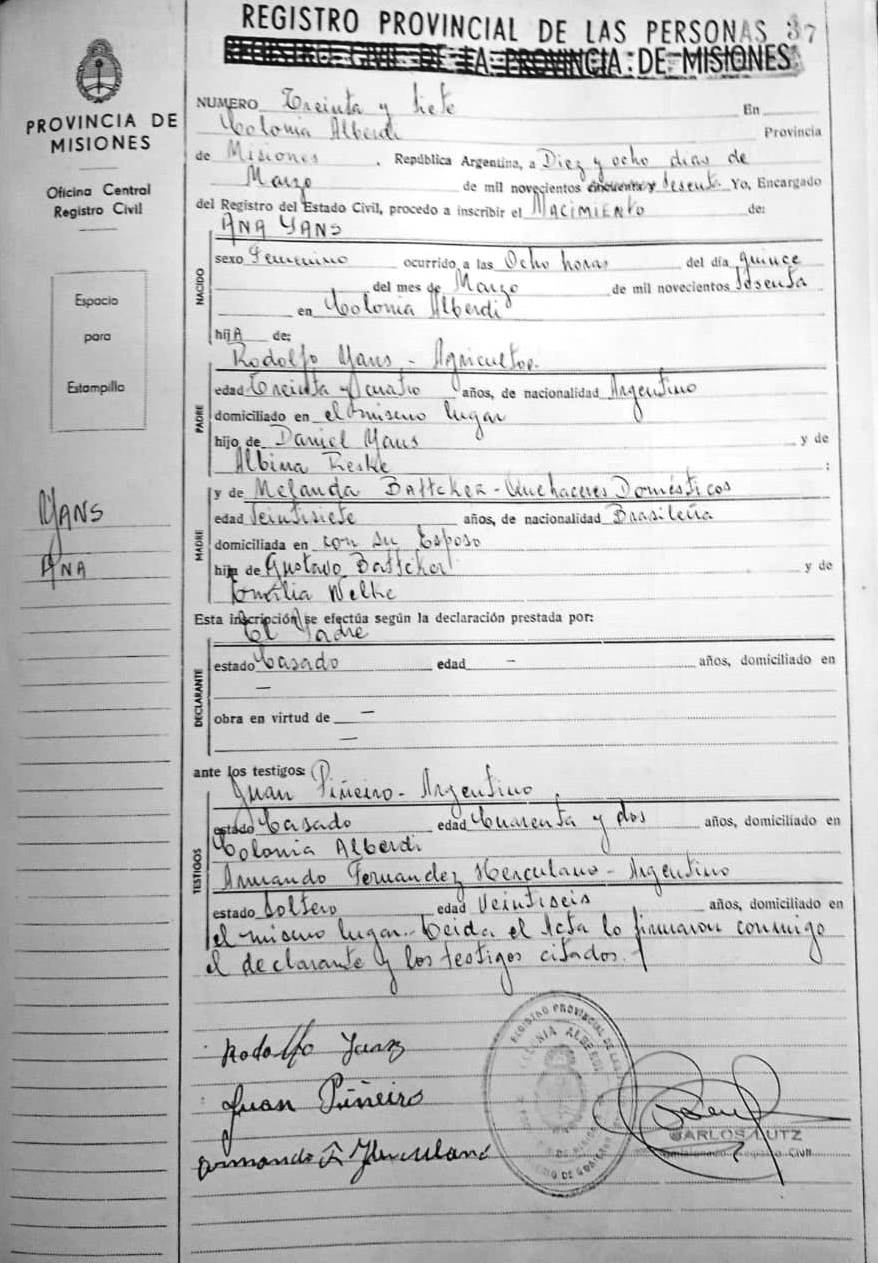 REGISTRO PROVINCIAL DE LAS PERSONAS 37
REGISTRO CIVIL DE LA PROVINCIA DE MISIONES
PROVINCIA DE
MISIONES
Oficina Central
Registro Civil
Espacio
para
Estampilla
YANS
ANA
NUMERO Treinta y siete En
Colonia Alberdi Provincia
de Misiones, República Argentina, a Diez y ocho dias de
Marzo de mil novecientos cincuenta y sesenta Yo, Encargado
del Registro del Estado Civil, procedo a inscribir el NACIMIENTO de:
NACIDO
ANA YANS
sexo Femenino ocurrido a las Ocho horas del día quince
del mes de Marzo de mil novecientos sesenta
en Colonia Alberdi
hijA de:
PADRE
Rodolfo Yans - Agricultor.
edad Treinta y cuatro años, de nacionalidad Argentino
domiciliado en el mismo lugar
hijo de Daniel Yans y de
Albina Reske :
MADRE
y de Melanda Battcher - Quehaceres Domésticos
edad Veintisiete años, de nacionalidad Brasileña
domiciliada en con su Esposo
hija de Gustavo Battcher y de
Emilia Welke
Esta inscripción se efectúa según la declaración prestada por:
DECLARANTE
El Padre
estado Casado edad — años, domiciliado en
—
obra en virtud de —
—
ante los testigos:
TESTIGOS
Juan Piñeiro - Argentino
estado Casado edad Cuarenta y dos años, domiciliado en
Colonia Alberdi
Armando Fernandez Herculano - Argentino
estado Soltero edad Veintiseis años, domiciliado en
el mismo lugar. Leida el Acta lo firmaron conmigo
el declarante y los testigos citados.
Rodolfo Yans
Juan Piñeiro
Armando F. Herculano
REGISTRO PROVINCIAL DE LAS
COLONIA ALBERDI
CARLOS LUTZ
Registro Civil